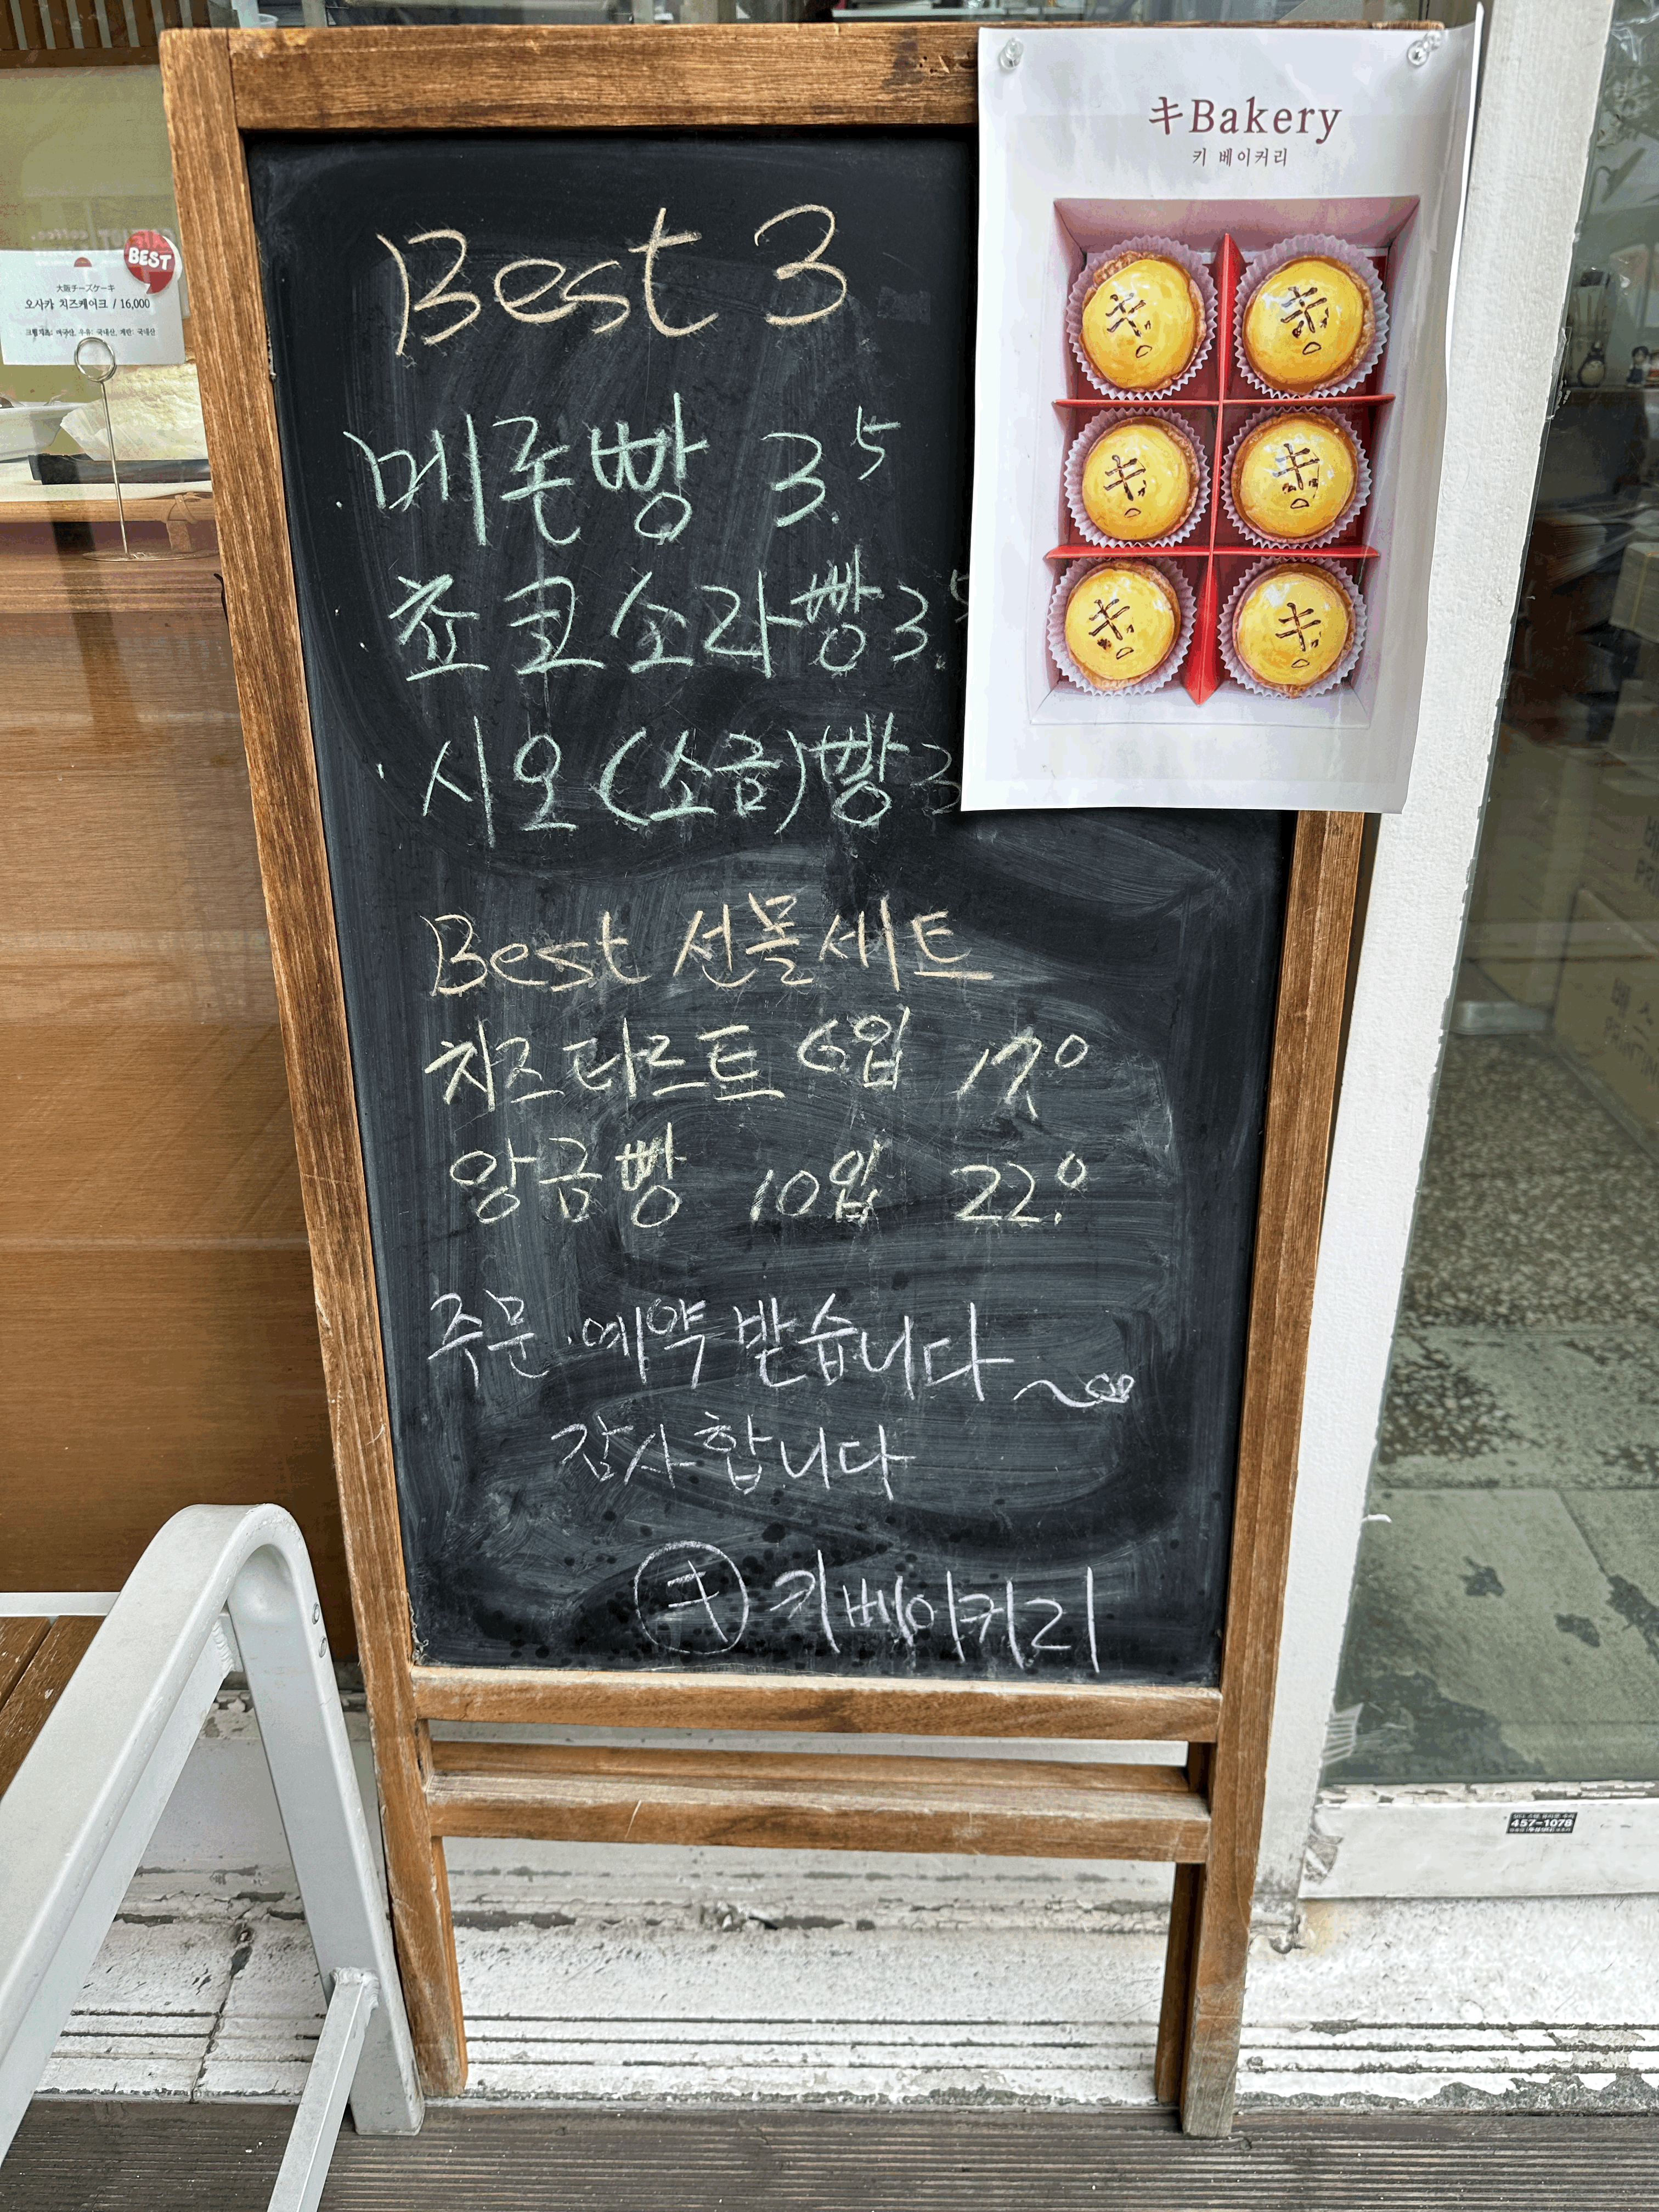 Best 3
메론빵 3.5
쵸코소라빵 3.5
시오(소금)빵 3
Best 선물세트
치즈타르트 6입 17.0
앙금빵 10입 22.0
주문·예약 받습니다~
감사합니다
キ 키베이커리
キBakery
키 베이커리
BEST
大阪チーズケーキ
오사카 치즈케이크 / 16,000
크림치즈: 미국산, 우유: 국내산, 계란: 국내산
457-1078